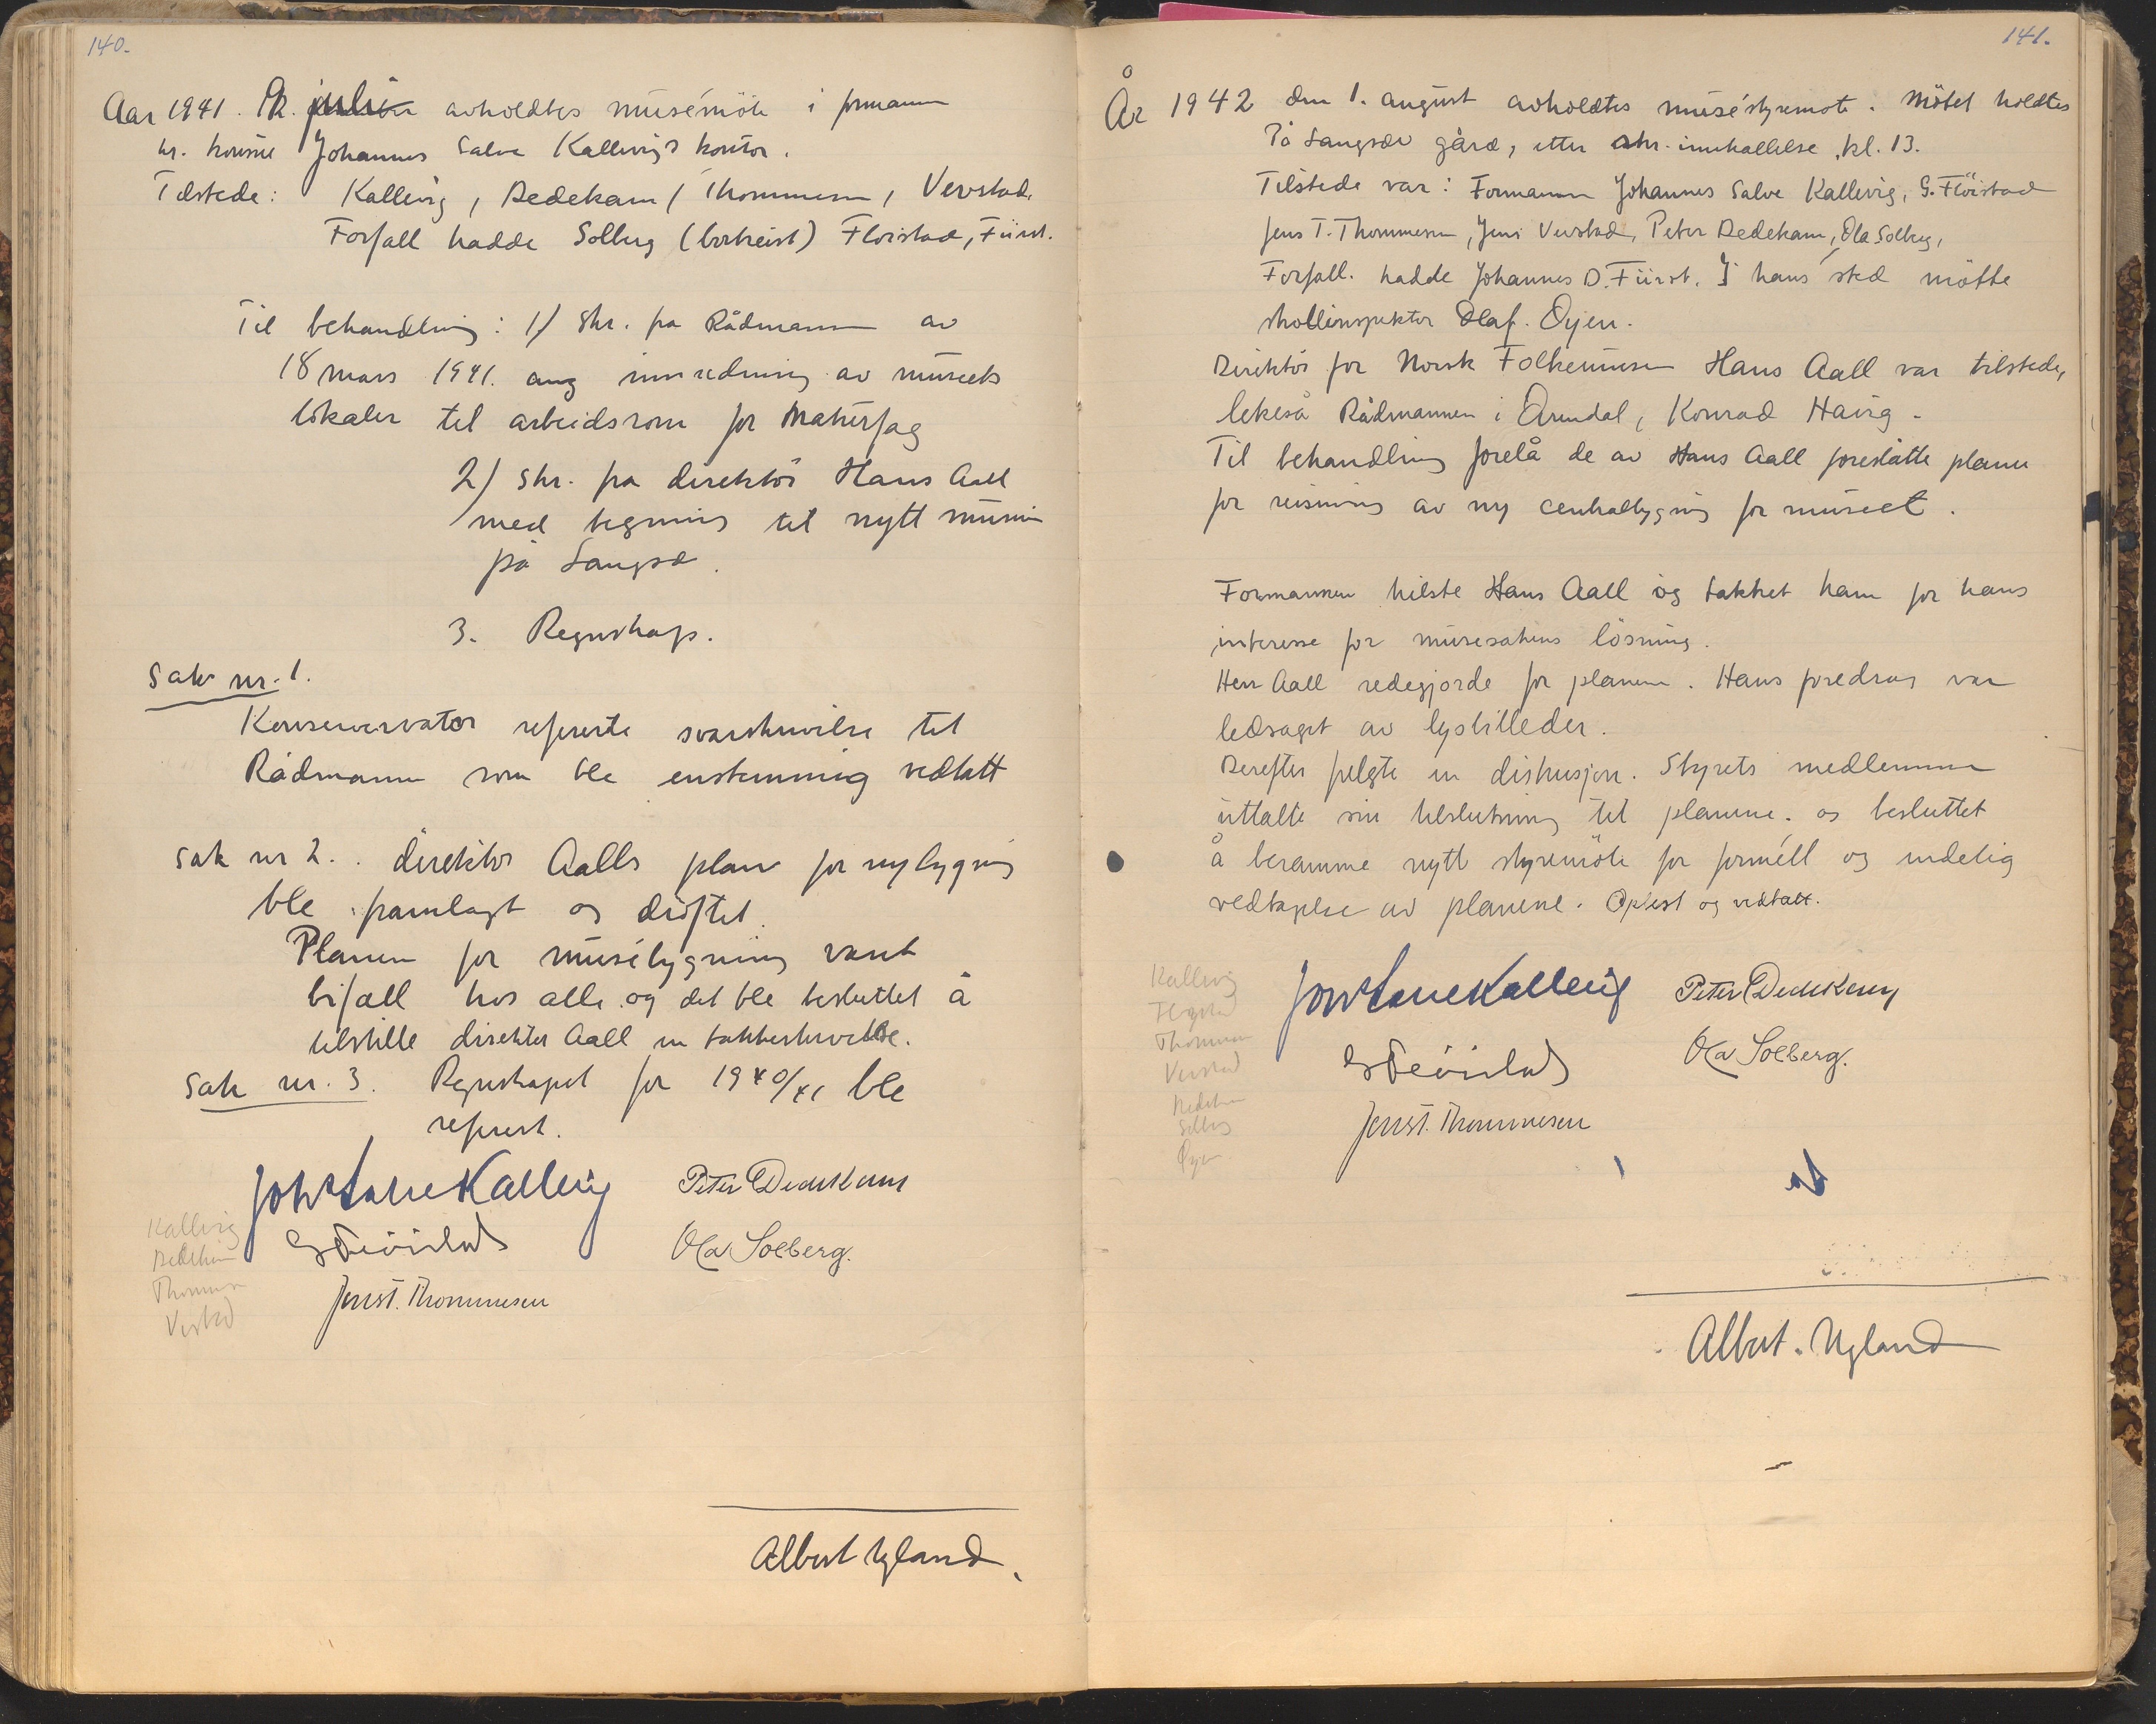 140.
Aar 1941. 12. juli avholdtes musémöte i formann
hr. konsul Johannes Salve Kallevigs kontor.
Tilstede: Kallevig, Dedekam, Thommesen, Vevstad,
Forfall hadde Solberg (bortreist) Flöistad, Fürst.
Til behandling: 1/ Skr. fra Rådmann av
18 mars 1941. ang innredning av museets
lokaler til arbeidsrom for Naturfag
2/ Skr. fra direktör Hans Aall
med tegning til nytt museum
på Langsæ.
3. Regnskap.
Sak nr. 1.
Konservervator refererte svarskrivelse til
Rådmann som ble enstemmig vedtatt
Sak nr 2. direktör Aalls plan for nybygning
ble framlagt og dröftet.
Planen for musébygning vant
bifall hos alle og det ble besluttet å
tilstille direktör Aall en takkeskrivelse.
Sak nr. 3. Regnskapet for 1940/41 ble
referert.
Joh Salve Kallevig Peter Dedekam
G Flöistad Ola Solberg.
Jens T. Thommesen
Kallevig
Dedekam
Thommesen
Vevstad
Albert Ugland.
141.
År 1942 den 1. august avholdtes muséstyremöte. Mötet holdtes
På Langsæe gård, etter skr. innkallelse, kl. 13.
Tilstede var: Formann Johannes Salve Kallevig, G. Flöistad
Jens T. Thommesen, Jens Vevstad, Peter Dedekam, Ola Solberg,
Forfall hadde Johannes D. Fürst. I hans sted mötte
skolinspektör Olaf Öyen.
Direktör for Norsk Folkemuseum Hans Aall var tilstede,
lekeså Rådmannen i Arendal, Konrad Havig.
Til behandling forelå de av Hans Aall foreslåtte planer
for reisning av ny centralbygning for museet.
Formannen hilste Hans Aall og takket ham for hans
interesse for musesakens lösning.
Herr Aall redegjorde for planene. Hans foredrag var
ledsaget av lysbilleder.
Derefter fulgte en diskusjon. Styrets medlemmer
uttalte sin tilslutning til planene. og besluttet
å beramme nytt styremöte for formell og endelig
vedtagelse av planene. Oplest og vedtatt.
Joh Salve Kallevig Peter Dedekam
G Flöistad Ola Solberg.
Jens T. Thommesen
Kallevig
Flöistad
Thommesen
Vevstad
Dedekam
Solberg
Öyen
Albert Ugland